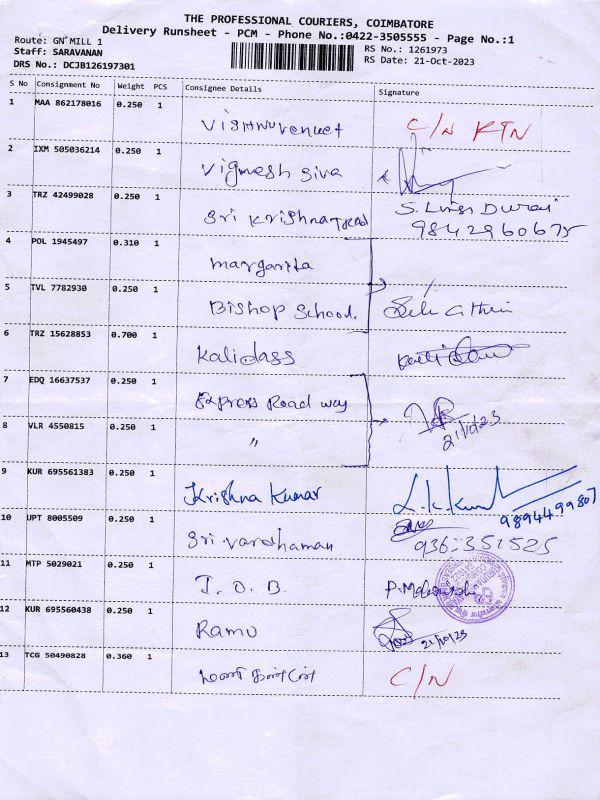 THE PROFESSIONAL COURIERS, COIMBATORE
Delivery Runsheet - PCM - Phone No.:0422-3505555 - Page No.:1
Route: GN MILL 1
Staff: SARAVANAN
DRS No.: DCJB126197301
RS No.: 1261973
RS Date: 21-Oct-2023
S No Consignment No Weight PCS Consignee Details Signature
1 MAA 862178016 0.250 1 Vishnuvenket C/N RTN
2 IXM 505036214 0.250 1 Vignesh Siva
3 TRZ 42499028 0.250 1 Sri Krishna Trad S. Linga Durai
9842960675
4 POL 1945497 0.310 1 margarita
5 TVL 7782930 0.250 1 Bishop School.
6 TRZ 15628853 0.700 1 Kalidass
7 EDQ 16637537 0.250 1 Express Road way
21/10/23
8 VLR 4550815 0.250 1 "
9 KUR 695561383 0.250 1 Krishna Kumar L.K.Kum
9894499807
10 UPT 8005509 0.250 1 Sri vardhaman
11 MTP 5029021 0.250 1 I. O. B.
12 KUR 695560438 0.250 1 Ramu 21/10/23
13 TCG 50490828 0.360 1 C/N